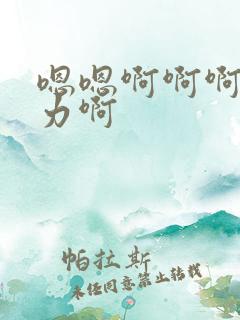 嗯嗯啊啊啊
力啊
帕拉斯
未经同意禁止转载